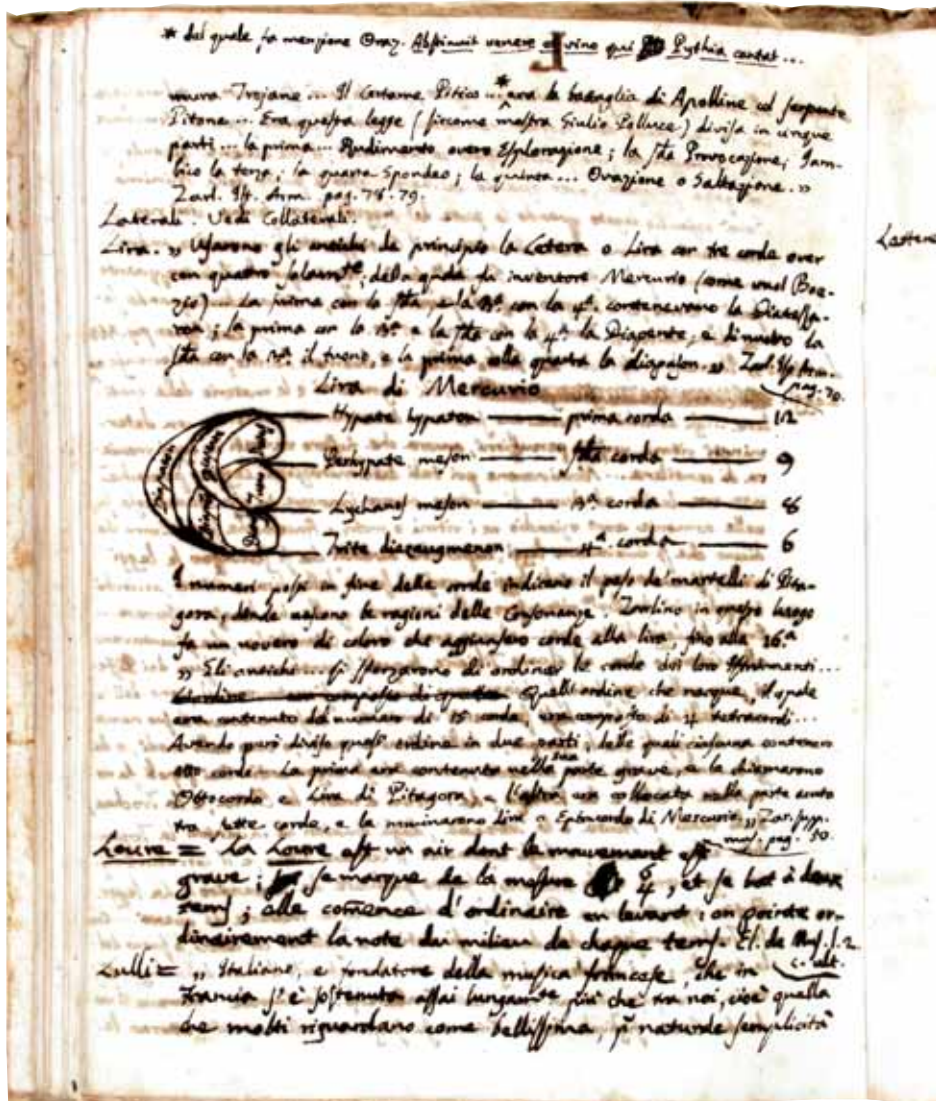 * del quale fa menzione Oraz. Abstinuit venere et vino qui Pythia cantat...
L
mura Trojane... Il Certame Pitico...* era la battaglia di Apolline col serpente
Pitone... Era questa legge (siccome mostra Giulio Polluce) divisa in cinque
parti... la prima... Rudimento overo Esplorazione; la 2da Provocazione; Iam-
bico la terza; la quarta Spondeo; la quinta... Ovazione o Saltazione. "
Zarl. Ist. Arm. pag. 78. 79.
Laterali. Vedi Collaterali.
Lira. " Usarono gli antichi da principio la Cetera o Lira con tre corde over
con quattro solamte; della quale fu inventore Mercurio (come vuol Boe-
zio)... La prima con la 2da, e la 3a. con la 4a. contenevano la Diatessa-
ron; la prima con la 3a. e la 2da con la 4a. la Diapente, e di nuovo la
2da con la 3a. il tuono, e la prima colla quarta la diapason. " Zarl. Ist. Arm.
pag. 70.
Lira di Mercurio
Hypate hypaton prima corda 12
Parhypate meson 2da corda 9
Lychanos meson 3a. corda 8
Trite diezeugmenon 4a. corda 6
I numeri posti in fine delle corde indicano il peso de' martelli di Pita-
gora, donde nascono le ragioni delle Consonanze. Zarlino in questo luogo
fa un novero di coloro che aggiunsero corde alla lira fino alle 16.a
" Gli antichi... si sforzarono di ordinar le corde dei loro Istrumenti...
Quell'ordine che nacque, il quale
era contenuto dal numero di 15 corde, era composto di 4 tetracordi...
Avendo però diviso questi ordine in due parti, delle quali ciascuna contenea
otto corde. La prima era contenuta nella sua parte grave, e la chiamarono
Ottocordo e Lira di Pitagora, e l'altra era collocata nella parte acuta
tra sette corde, e la nominarono Lira o Eptacordo di Mercurio " Zar. Supp.
mus. pag. 50.
Loure = La Loure est un air dont le mouvement est
grave; se marque de la mesure 6/4, et se bat à deux
tems; elle comence d'ordinaire en levant; on pointe or-
dinairement la note du milieu de chaque tems. El. de Mus. l. 2
c. ult.
Lulli = " Italiano, e fondatore della musica francese, che in
Francia s'è sostenuta assai lungamte più che tra noi, cioè quella
che molti riguardano come bellissima, p naturale semplicità
Diapason